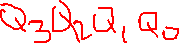 Q₃Q₂Q₁Q₀